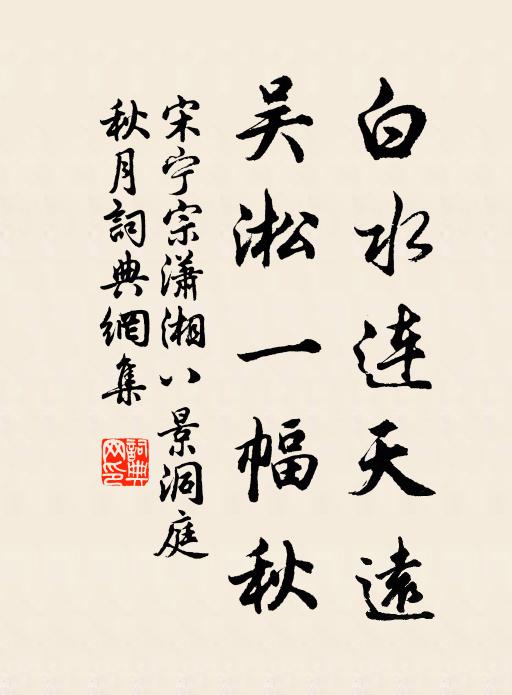 白水连天遠
吴淞一幅秋
宋宁宗瀟湘八景洞庭
秋月詞典網集
詞典网印